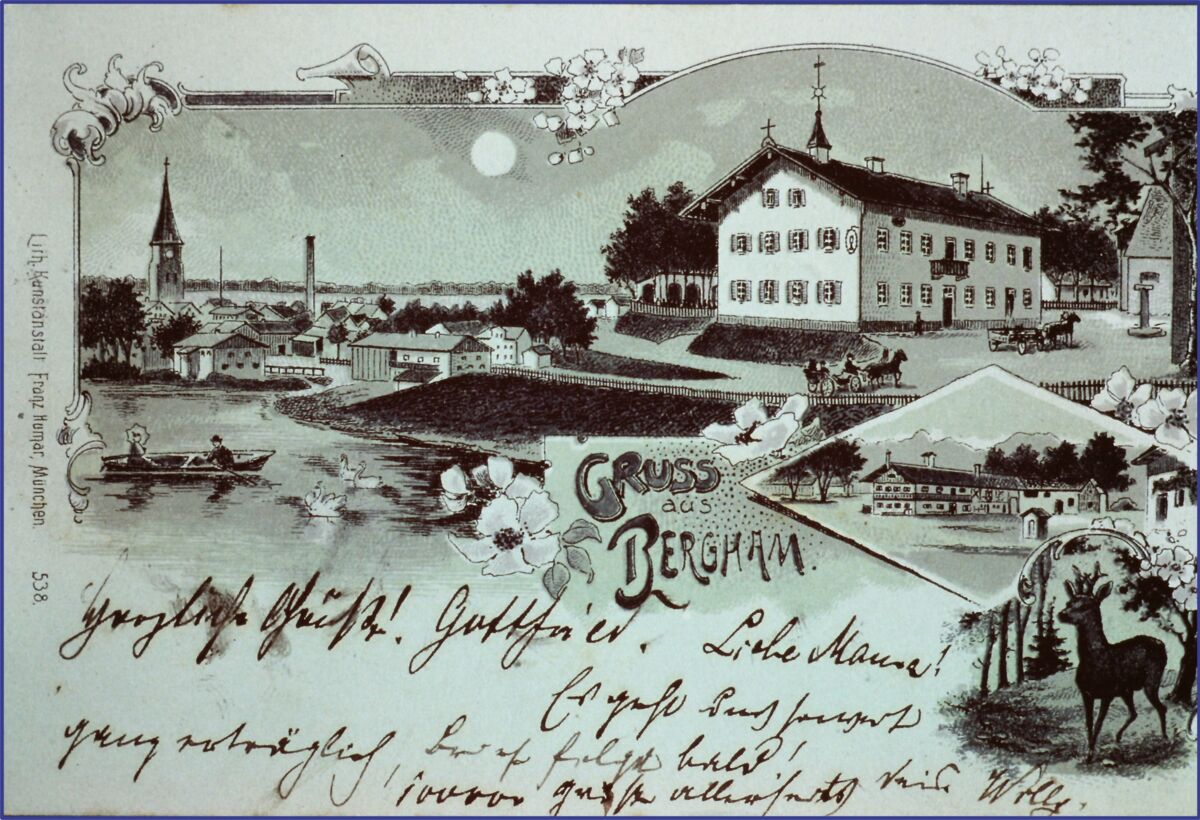 GRUSS
aus
BERGHAM.
Lith. Kunstanstalt Franz Humar, München. 538.
Herzliche Grüße! Gottfried. Liebe Mama!
Es geht uns soweit
ganz erträglich, Brief folgt bald!
100000 Grüße allerseits dein Willy.